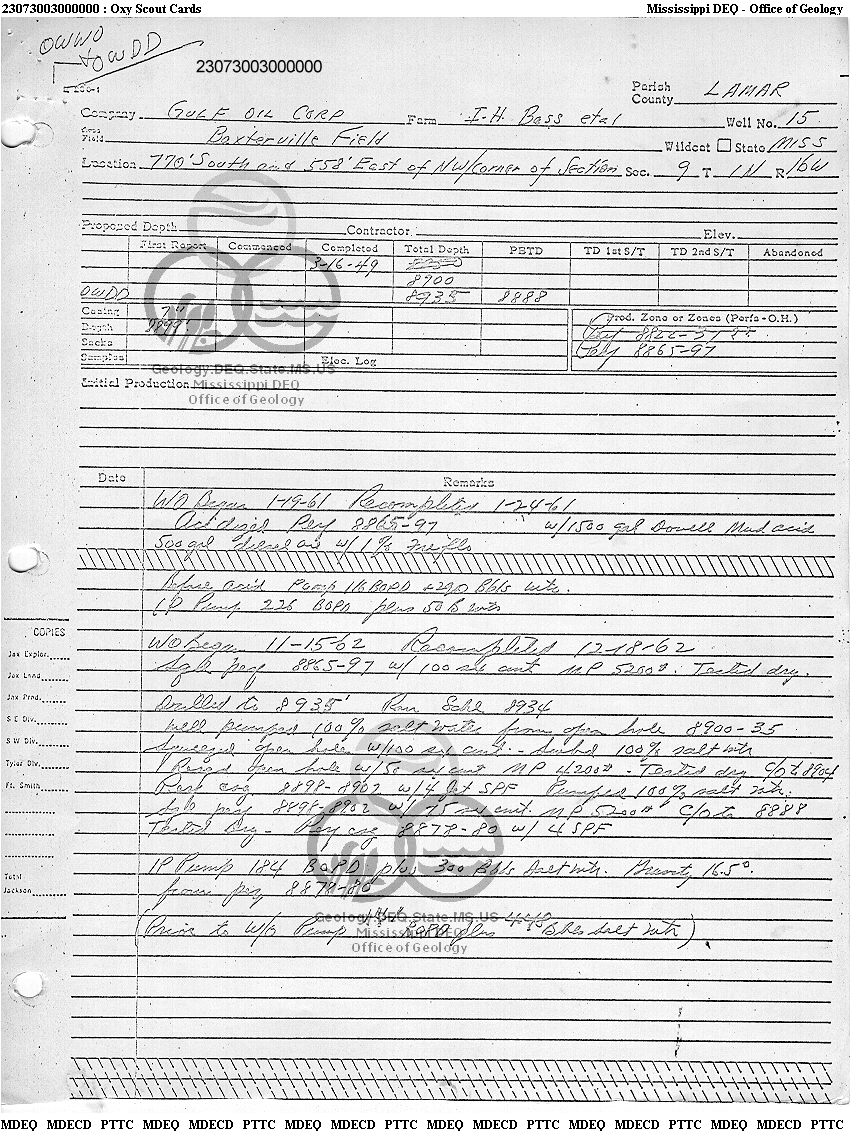 23073003000000 : Oxy Scout Cards Mississippi DEQ - Office of Geology
OWWO
to OWDD
23073003000000
Parish
County LAMAR
Company GULF OIL CORP Farm I.H. Bass etal Well No. 15
Field Baxterville Field Wildcat State MISS
Location 770' South and 558' East of NW/Corner of Section Sec. 9 T 1N R 16W
Proposed Depth Contractor Elev.
First Report Commenced Completed Total Depth PBTD TD 1st S/T TD 2nd S/T Abandoned
3-16-49
8900
OWDD 8935 8888
Casing 7" Prod. Zone or Zones (Perfs - O.H.)
Depth 8899'
Sacks 8865-97
Samples Elec. Log
Geology.DEQ.State.MS.US
Initial Production
Mississippi DEQ
Office of Geology
Date Remarks
WO Began 1-19-61 Recompleted 1-24-61
Acidized Perf 8865-97 w/1500 gal Dowell Mud acid
500 gal diesel oil w/ 1%
Before acid Pump BOPD + 290 Bbls wtr.
IP Pump 226 BOPD plus 50 B wtr
COPIES
WO Began 11-15-62 Recompleted 12-18-62
Jax Explor.
Sqz perf 8865-97 w/ 100 sx cmt MP 5200#. Tested dry.
Jax Land
Jax Prod.
Drilled to 8935' Ran Schl 8934
S E Div.
Well pumped 100% salt water from open hole 8900-35
S W Div.
Squeezed open hole w/100 sx cmt - 100% salt wtr
Tyler Div.
open hole w/50 sx cmt MP 4200# - Tested dry C/O to 8904
Ft. Smith
Perf csg 8898-8902 w/4 jet SPF Pumped 100% salt wtr.
Sqz perf 8898-8902 w/ 75 sx cmt. MP 5200# C/O to 8888
Tested Dry - Perf csg 8878-80 w/ 4 SPF
Total
IP Pump 184 BOPD plus 300 Bbls Salt wtr. Gravity 16.5°
Jackson
from perf 8878-80
Geology.DEQ.State.MS.US
(Prior to W/O Pump BOPD plus Bbls salt wtr)
Mississippi DEQ
Office of Geology
MDEQ MDECD PTTC MDEQ MDECD PTTC MDEQ MDECD PTTC MDEQ MDECD PTTC MDEQ MDECD PTTC MDEQ MDECD PTTC